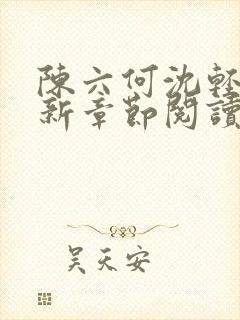 陳六何沈輕
新章節閱讀
吴天安